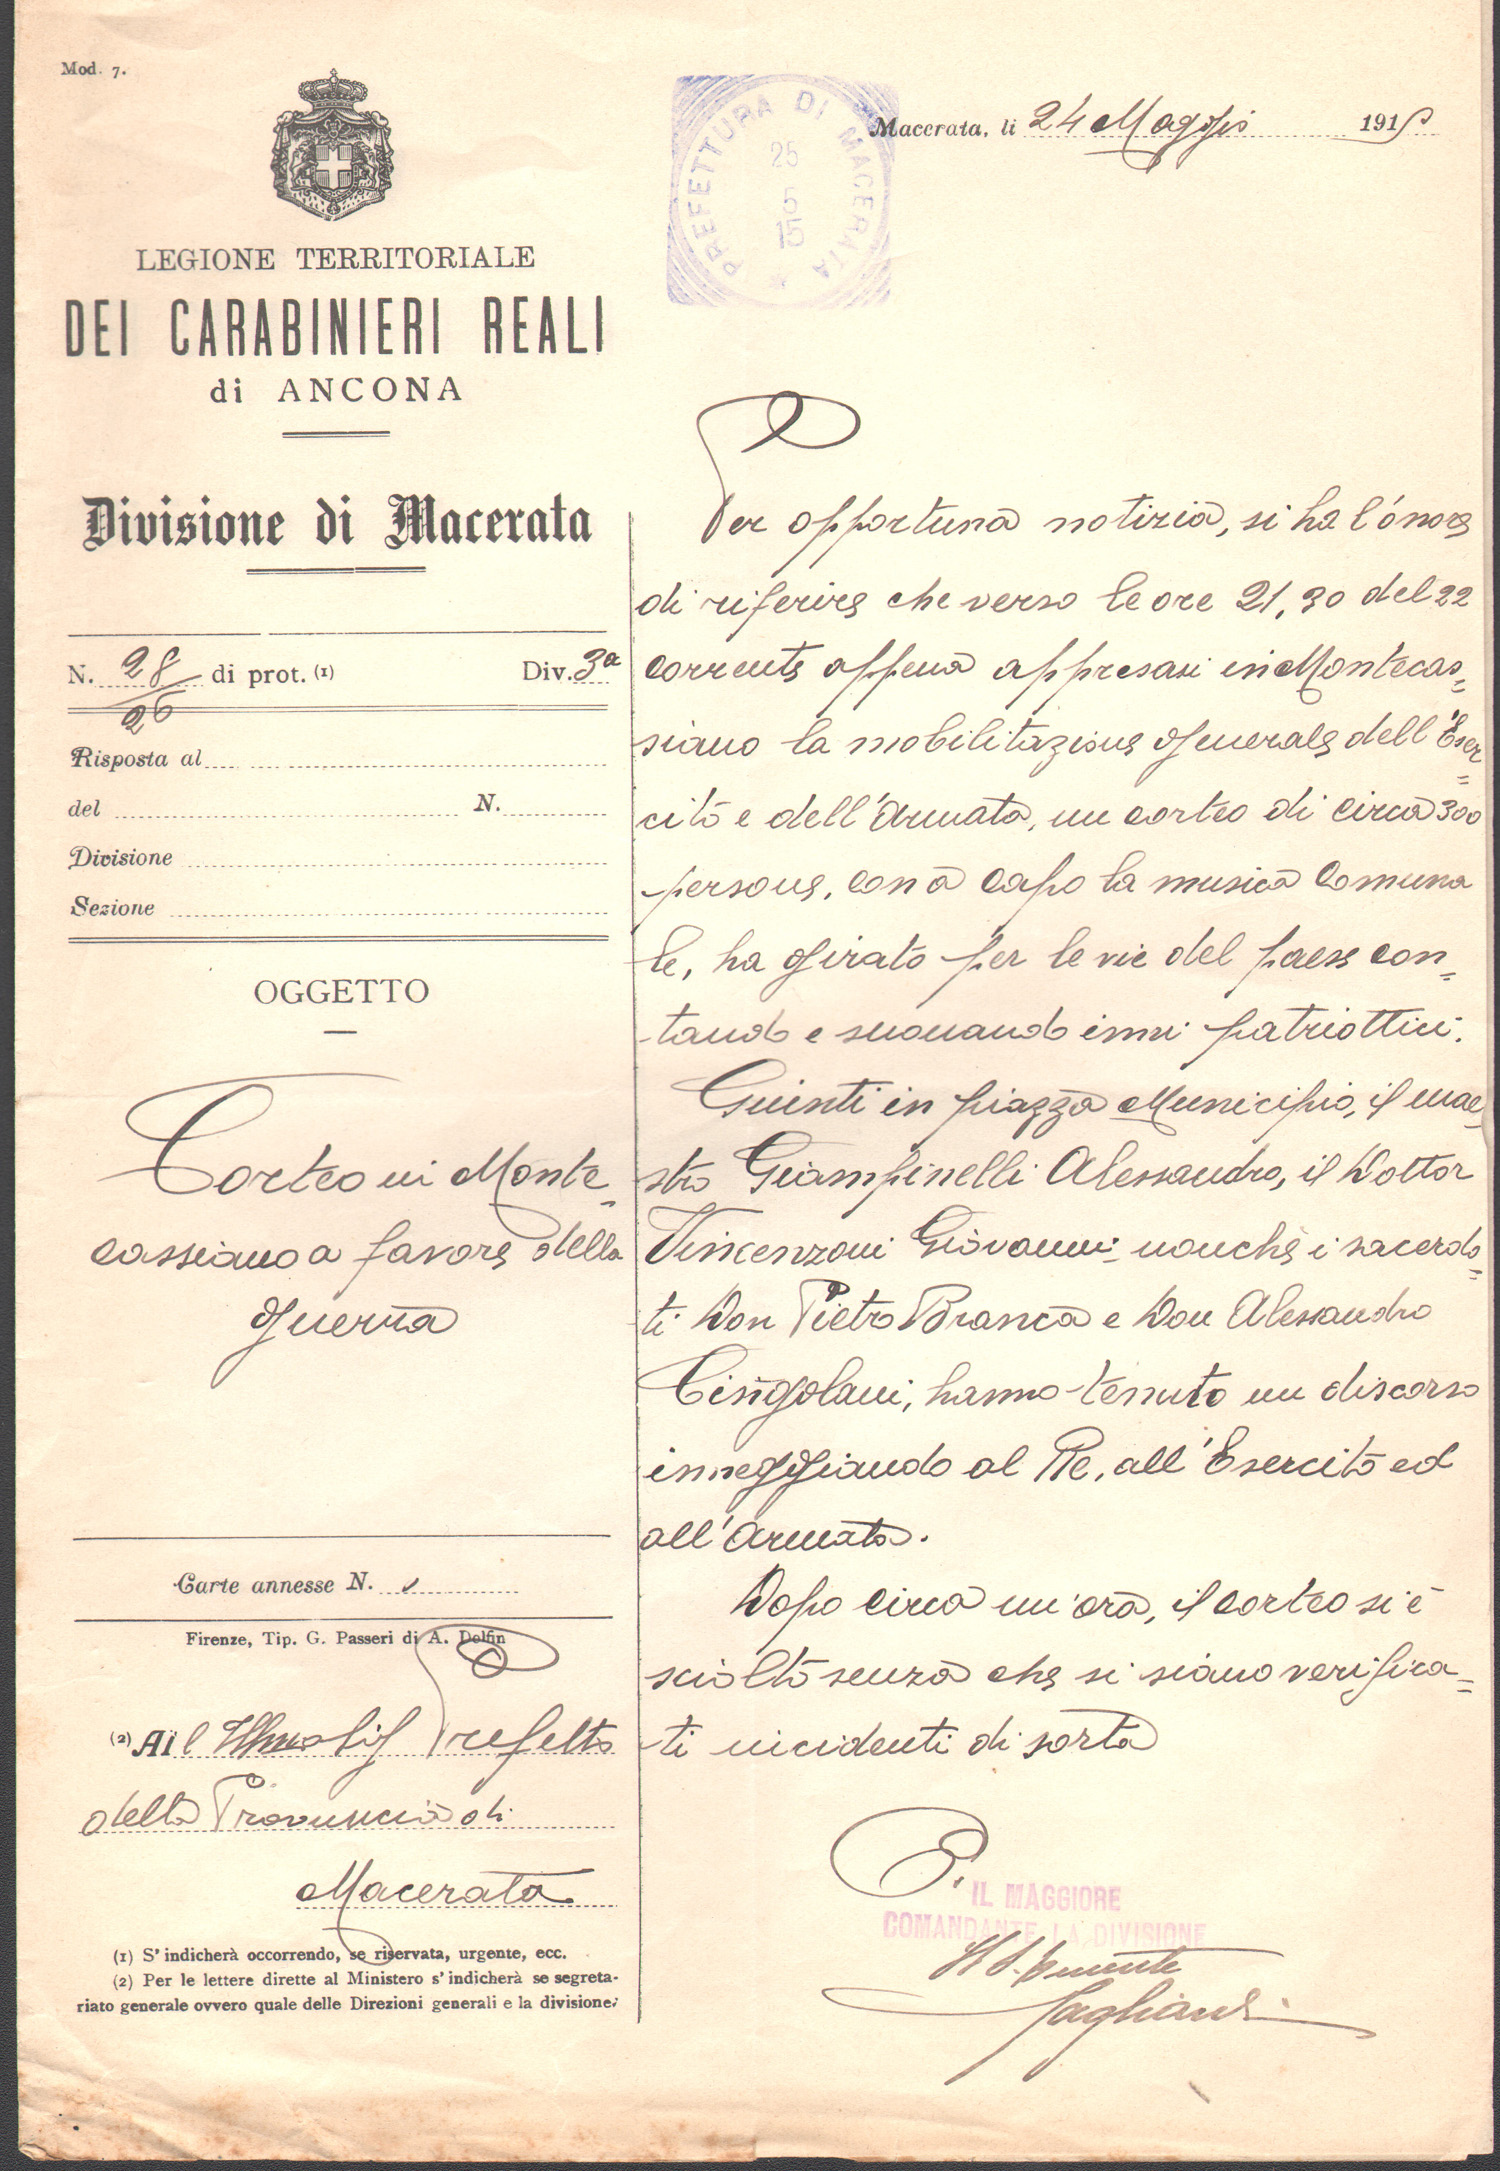 Mod. 7.
LEGIONE TERRITORIALE
DEI CARABINIERI REALI
di ANCONA
Divisione di Macerata
N. 28/26 di prot. (1) Div. 3a
Risposta al
del N.
Divisione
Sezione
OGGETTO
Corteo in Monte-
cassiano a favore della
guerra
Carte annesse N.
Firenze, Tip. G. Passeri di A. Dolfin
(2) All Prefetto
della Provincia di
Macerata
(1) S'indicherà occorrendo, se riservata, urgente, ecc.
(2) Per le lettere dirette al Ministero s'indicherà se segreta-
riato generale ovvero quale delle Direzioni generali e la divisione.
PREFETTURA DI MACERATA
25
5
15
Macerata, li 24 Maggio 1915
Per opportuna notizia, si ha l'onore
di riferire che verso le ore 21,30 del 22
corrente appena appresasi in Montecas=
siano la mobilitazione generale dell'Eser=
cito e dell'Armata, un corteo di circa 300
persone, con a capo la musica Comuna
le, ha girato per le vie del paese can=
tando e suonando inni patriottici.
Giunti in piazza Municipio, il mae-
stro Giampinelli Alessandro, il Dottor
Vincenzoni Giovanni nonchè i sacerdo=
ti Don Pietro Branca e Don Alessandro
Cingolani, hanno tenuto un discorso
inneggiando al Re, all'Esercito ed
all'Armata.
Dopo circa un'ora, il corteo si è
sciolto senza che si siano verifica=
ti incidenti di sorta
P. IL MAGGIORE
COMANDANTE LA DIVISIONE